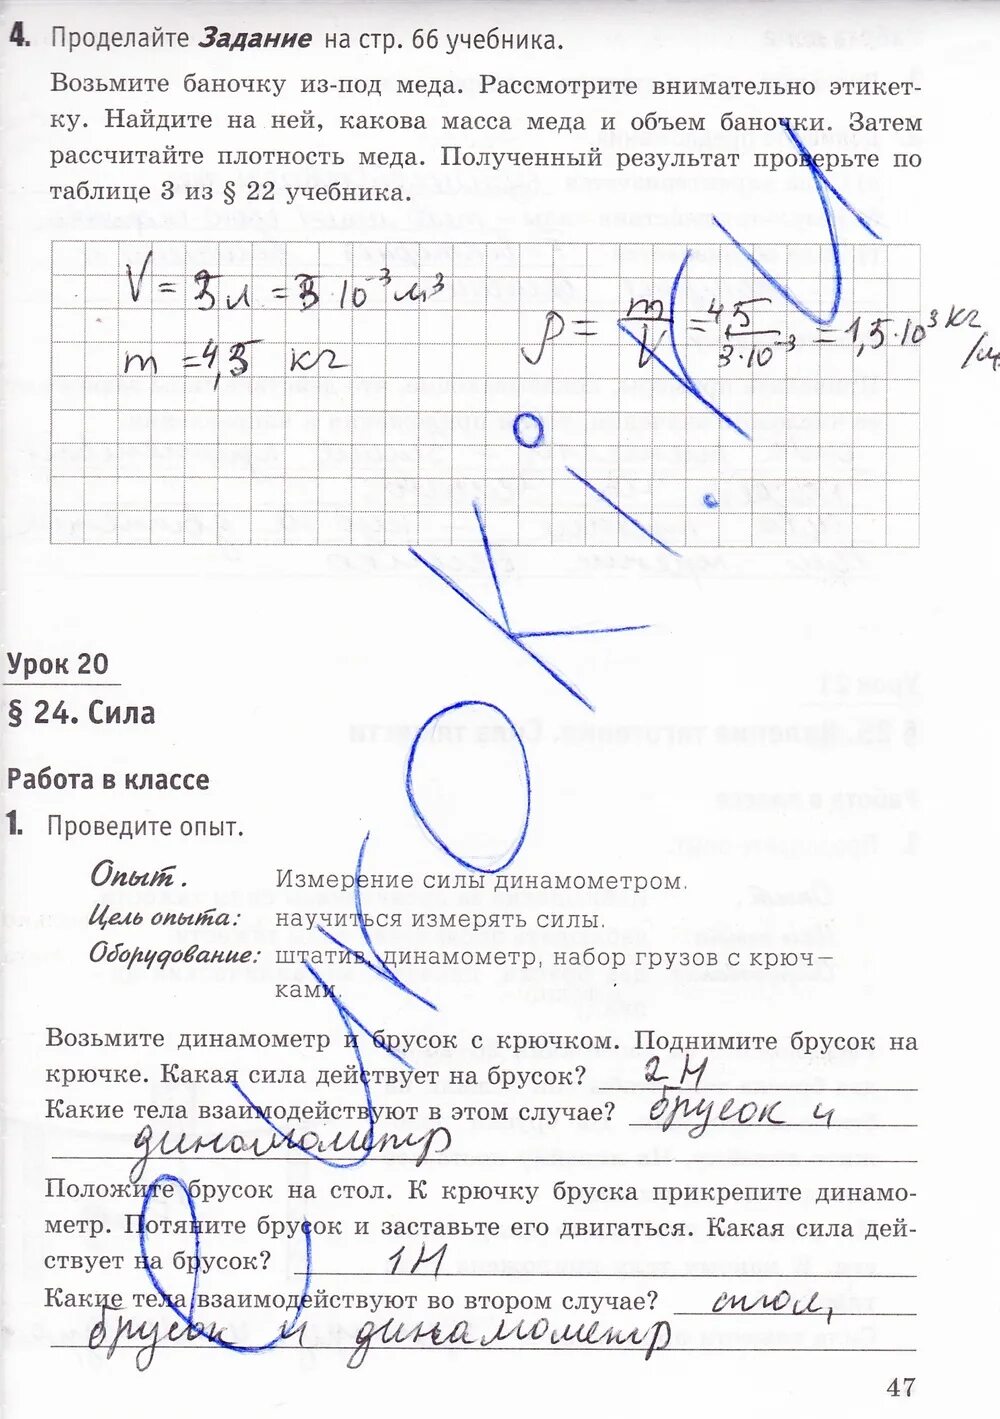 4. Проделайте Задание на стр. 66 учебника.
Возьмите баночку из-под меда. Рассмотрите внимательно этикет-
ку. Найдите на ней, какова масса меда и объем баночки. Затем
рассчитайте плотность меда. Полученный результат проверьте по
таблице 3 из § 22 учебника.
V = 3 л = 3 · 10⁻³ м³
m = 4,5 кг
ρ = m/V = 4,5/3·10⁻³ = 1,5·10³ кг/м
Урок 20
§ 24. Сила
Работа в классе
1. Проведите опыт.
Опыт. Измерение силы динамометром.
Цель опыта: научиться измерять силы.
Оборудование: штатив, динамометр, набор грузов с крюч-
ками.
Возьмите динамометр и брусок с крючком. Поднимите брусок на
крючке. Какая сила действует на брусок? 2 Н
Какие тела взаимодействуют в этом случае? брусок и
динамометр
Положите брусок на стол. К крючку бруска прикрепите динамо-
метр. Потяните брусок и заставьте его двигаться. Какая сила дей-
ствует на брусок? 1Н
Какие тела взаимодействуют во втором случае? стол,
брусок и динамометр
47